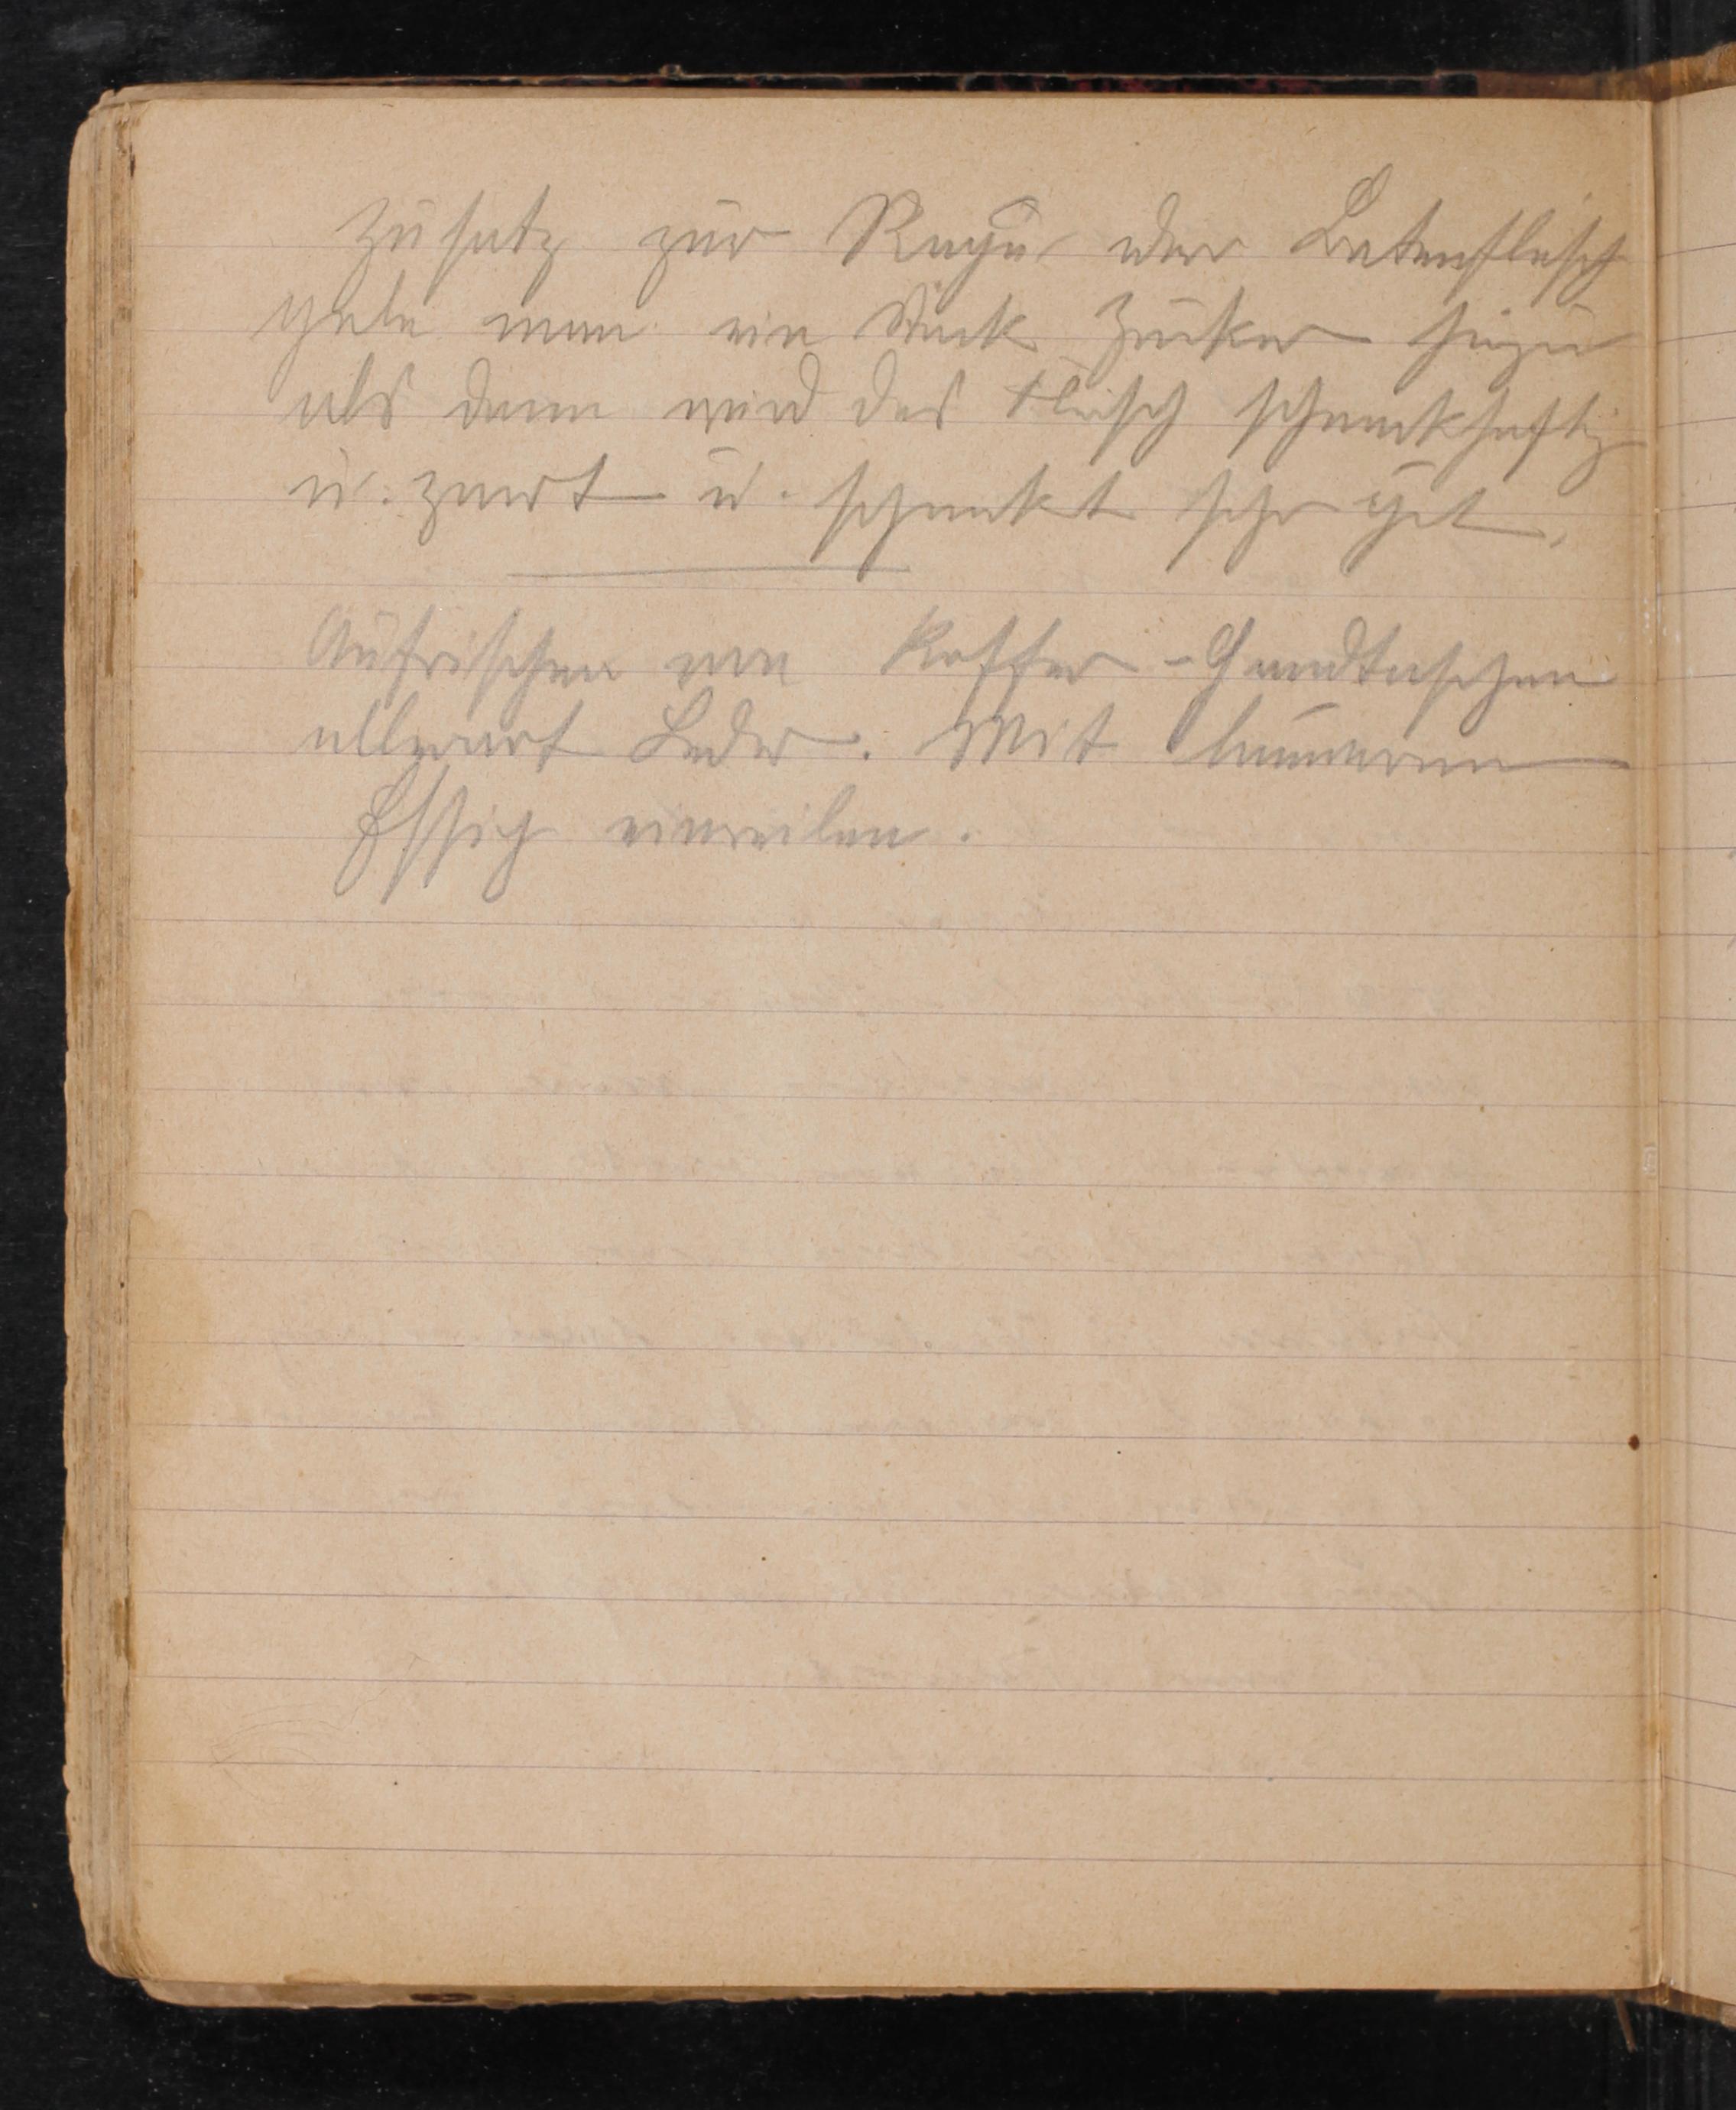 Zusatz zur Ragu oder Bratenfleisch
gebe man ein Stück Zucker hinzu
als dann wird das Fleisch schmackhaftig
u. zart u. schmekt sehr gut.
Aufrischen von Koffer - Handtaschen
allerart Leder. Mit
Essig einreiben.